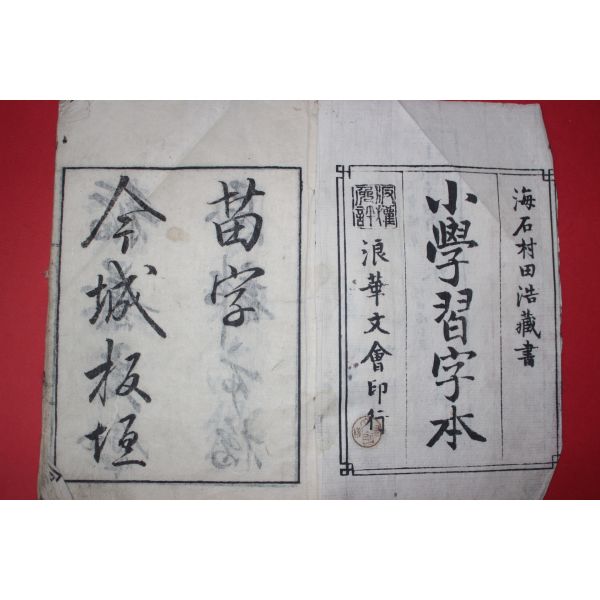 海石村田浩藏書
小學習字本
浪華文會印行
苗字
今城板垣